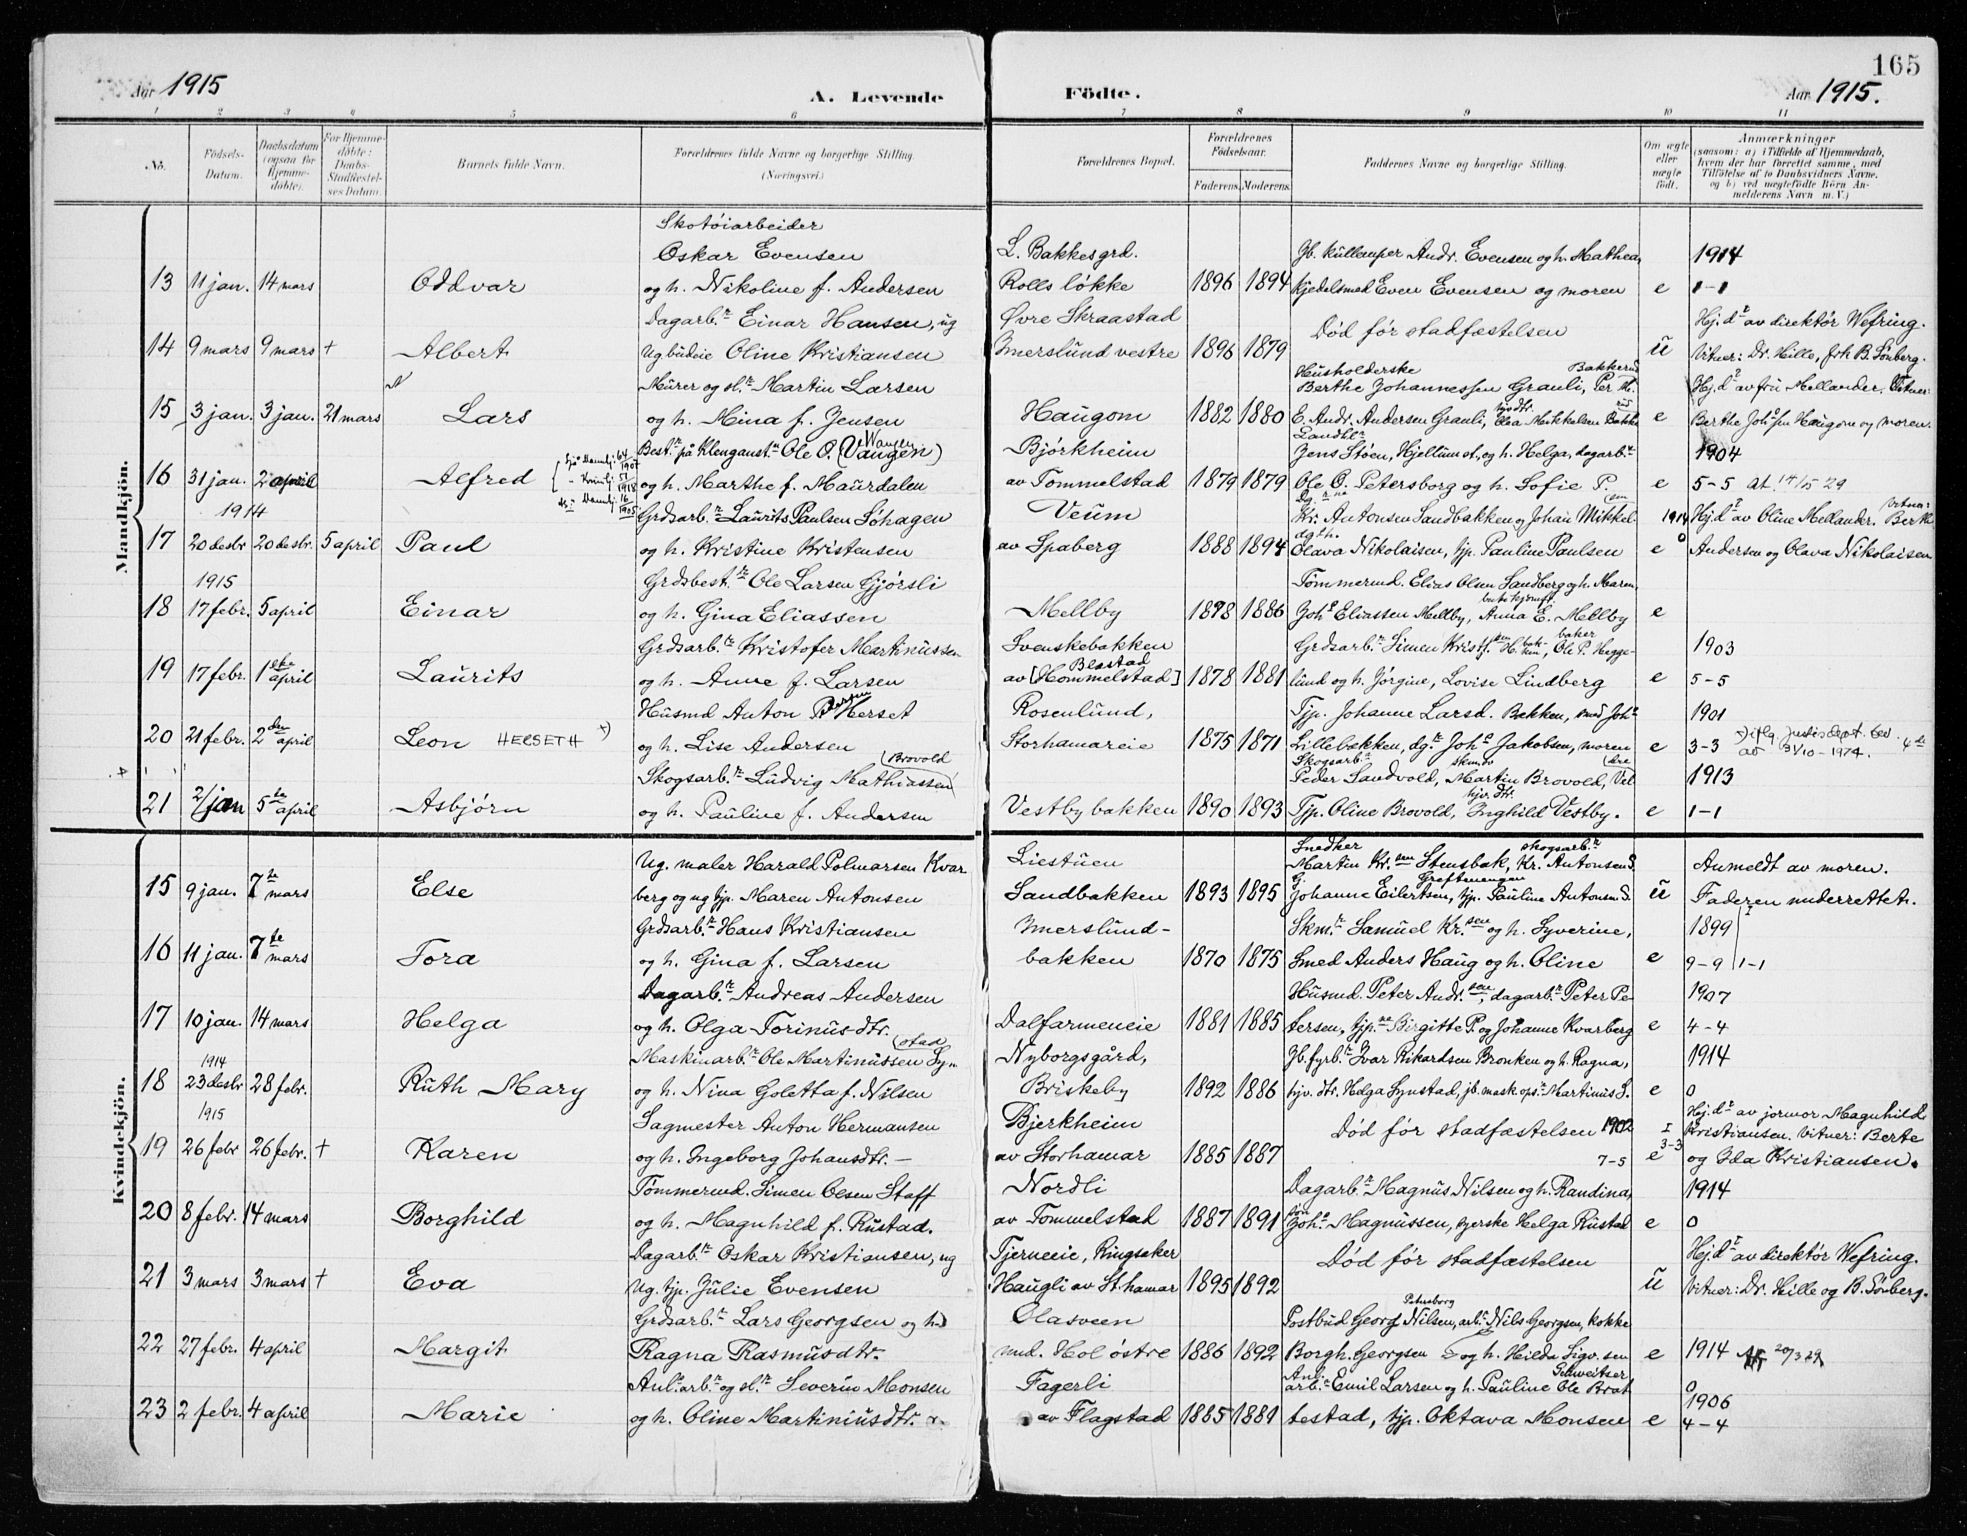 165
Aar 1915
A. Levende
Födte.
Aar 1915.
1 2 3 4 5 6 7 8 9 10 11
No.
Födsels-Datum.
Daabsdatum (ogsaa for Hjemme-döbte).
For Hjemme-döbte: Daabs-Stadfæstel-ses Datum.
Barnets fulde Navn.
Forældrenes fulde Navne og borgerlige Stilling. (Næringsvei.)
Forældrenes Bopæl.
Forældrenes Födselsaar.
Faderens. Moderens.
Faddernes Navne og borgerlige Stilling.
Om ægte eller uægte født.
Anmærkninger
(saasom: a) i Tilfælde af Hjemmedaab, hvem der har forrettet samme, med Tilføielse af to Daabsvidners Navne, og b) ved uægtefødte Börn An-melderens Navn m. V.)
Mandkjön.
Skotöiarbeider
Oskar Evensen L. Bakkesgrd. Andr. Evensen og h. Mathea, 1914
13 11 jan. 14 mars Oddvar og h. Nikoline f. Andersen Rolls lökke 1896 1894 Kjedelsmed Even Evensen og moren e 1-1
Dagarb.r Einar Hansen, ug Øvre Skraastad Död för stadfæstelsen Hj.d. av direktör Wefring.
14 9 mars 9 mars + Albert Ug budeie Oline Kristiansen Imerslund vestre 1896 1879 u Vitner: Dr. Hille, Joh B. Sönberg.
Murer og sl.r Martin Larsen Husholderske Berthe Johannessen Grauli, Per M. Bakkerud Hj.d. av fru Mellander. Vitner:
15 3 jan. 3 jan. 21 mars Lars og h. Mina f. Jensen Haugom 1882 1880 E. Andr. Andersen Grauli, Mikkelsen e Berthe Haugom og moren.
Best.r på Klenganst. Ole O. (Vangen) Wangen Bjørkheim Jens Stöen, Hjellum st., og h. Helga, dagarb.r 1904
16 31 jan. 2 april Alfred og h. Marthe f. Maurdalen av Tommelstad 1879 1879 Ole O. Petersborg og h. Sofie P. e 5-5 At. 14/5 29
1914 Grdsarb.r Laurits Paulsen Söhagen Veum Kr. Antonsen Sandbakken og Johan Mikkel 1914 Hj.d. av Oline Mellander. Vitner: Berth
17 20 desbr 20 desbr. 5 april Paul og h. Kristine Kristensen av Spaberg 1888 1894 Olava Nikolaisen, tjp. Pauline Paulsen e 0 Andersen og Olava Nikolaisen
1915 Grdbest.r Ole Larsen Gjörsli Tömmermd. Elias Olsen Sandberg og h. Maren,
18 17 febr. 5 april Einar og h. Gina Eliassen Mellby 1878 1886 Joh.s Eliassen Mellby, Anna E. Mellby e
Grdsarb.r Kristofer Martinussen Svenskebakken Grdsarb.r Simen baker Ole P. Hegge- 1903
19 17 febr. 1ste april Laurits og h. Anne f. Larsen av [Hommelstad] Beastad 1878 1881 lund og h. Jörgine, Lovise Lindberg e 5-5
Husmd Anton Herset Rosenlund, Tjp. Johanne Larsd. Bakken, Joh.s 1901
20 21 febr. 2den april Leon HERSETH x) og h. Lise Andersen Storhamareie 1875 1871 Lillebakken, dg.r Joh.s Jakobsen, moren e 3-3 x) iflg justisdept. bev. av 31/10-1974.
Skogsarb.r Ludvig Mathiassen (Brovold) Skogsarb.r Peder Sandvold, Martin Brovold, 1913
21 2/jan 5te april Asbjörn og h. Pauline f. Andersen Vestbybakken 1890 1893 Tjp. Oline Brovold, hjv. dtr. Inghild Vestby. e 1-1
Kvindekjön.
Ug. maler Harald Polmarsen Kvar Liestuen Snedker Martin Kr.sen Stensbak, skogsarb.r Kr. Antonsen S. Anmeldt av moren.
15 9 jan. 7de mars Else berg og ug tjp. Maren Antonsen Sandbakken 1893 1895 Johanne Eilertsen, tjp. Pauline Antonsen S. u Faderen underrettet.
Grdsarb.r Hans Kristiansen Imerslund- Skm.r Samuel Kr.sen og h. Syverine, 1899 1
16 11 jan. 7de mars Tora og h. Gina f. Larsen bakken 1870 1875 Smed Anders Haug og h. Oline e 9-9 1-1
Dagarb.r Andreas Andersen Husmd. Peter Andr.sen, dagarb.r Peter Pe- 1907
17 10 jan. 14 mars Helga og h. Olga Torinusdtr. Dalfarmeneie 1881 1885 tersen, tjp. Birgitte P. og Johanne Kvarberg e 4-4
1914 Maskinarb.r Ole Martinussen Syn- (stad Nyborgsgård, Jb. fyrb.r Ivar Rikardsen Bronken og h. Ragna, 1914
18 23 desbr 28 febr. Ruth Mary og h. Nina Goletta f. Nilsen Briskeby 1892 1886 hjv. dtr. Helga Synstad, jb. mask. ops.r Martinus S. e 0
1915 Sagmester Anton Hermansen Bjerkheim Död för stadfæstelsen 1902 1 Hj.d. av jormor Magnhild
19 26 febr 26 febr. + Karen og h. Ingeborg Johansdtr. - av Storhamar 1885 1887 7-5 3-3 e Kristiansen. Vitner: Berte og Ida Kristiansen.
Tömmermd. Simen Olsen Staff Nordli Dagarb.r Magnus Nilsen og h. Randina, 1914
20 8 febr. 14 mars Borghild og h. Magnhild f. Rustad. av Tommelstad 1887 1891 Joh.s Magnussen, syerske Helga Rustad e 0
Dagarb.r Oskar Kristiansen, ug Tjerneeie, Ringsaker Död för stadfæstelsen Hj.d. av direktör Wefring.
21 3 mars 3 mars + Eva Ug. tjp. Julie Evensen Haugli av St.hamar 1895 1892 u Vitner: Dr. Hille og B. Sönberg.
Grdsarb.r Lars Georgsen og h. Olasveen Postbud Georg Nilsen, Petersborg arb.r Nils Georgsen, kokke
22 27 febr. 4 april Margit Ragna Rasmusdtr. und. Hol östre 1886 1892 Borgh. Georgsen og h. Hilda Sigv. sen e 1914 20/3 29
Anl. arb.r og sl.r Severin Monsen Fagerli arb.r Emil Larsen og h. Pauline Ole Brot 0 1906
23 2 febr. 4 april Marie og h. Oline Martiniusdtr. av Flagstad 1885 1881 testad, tjp. Oktava Monsen e 4-4